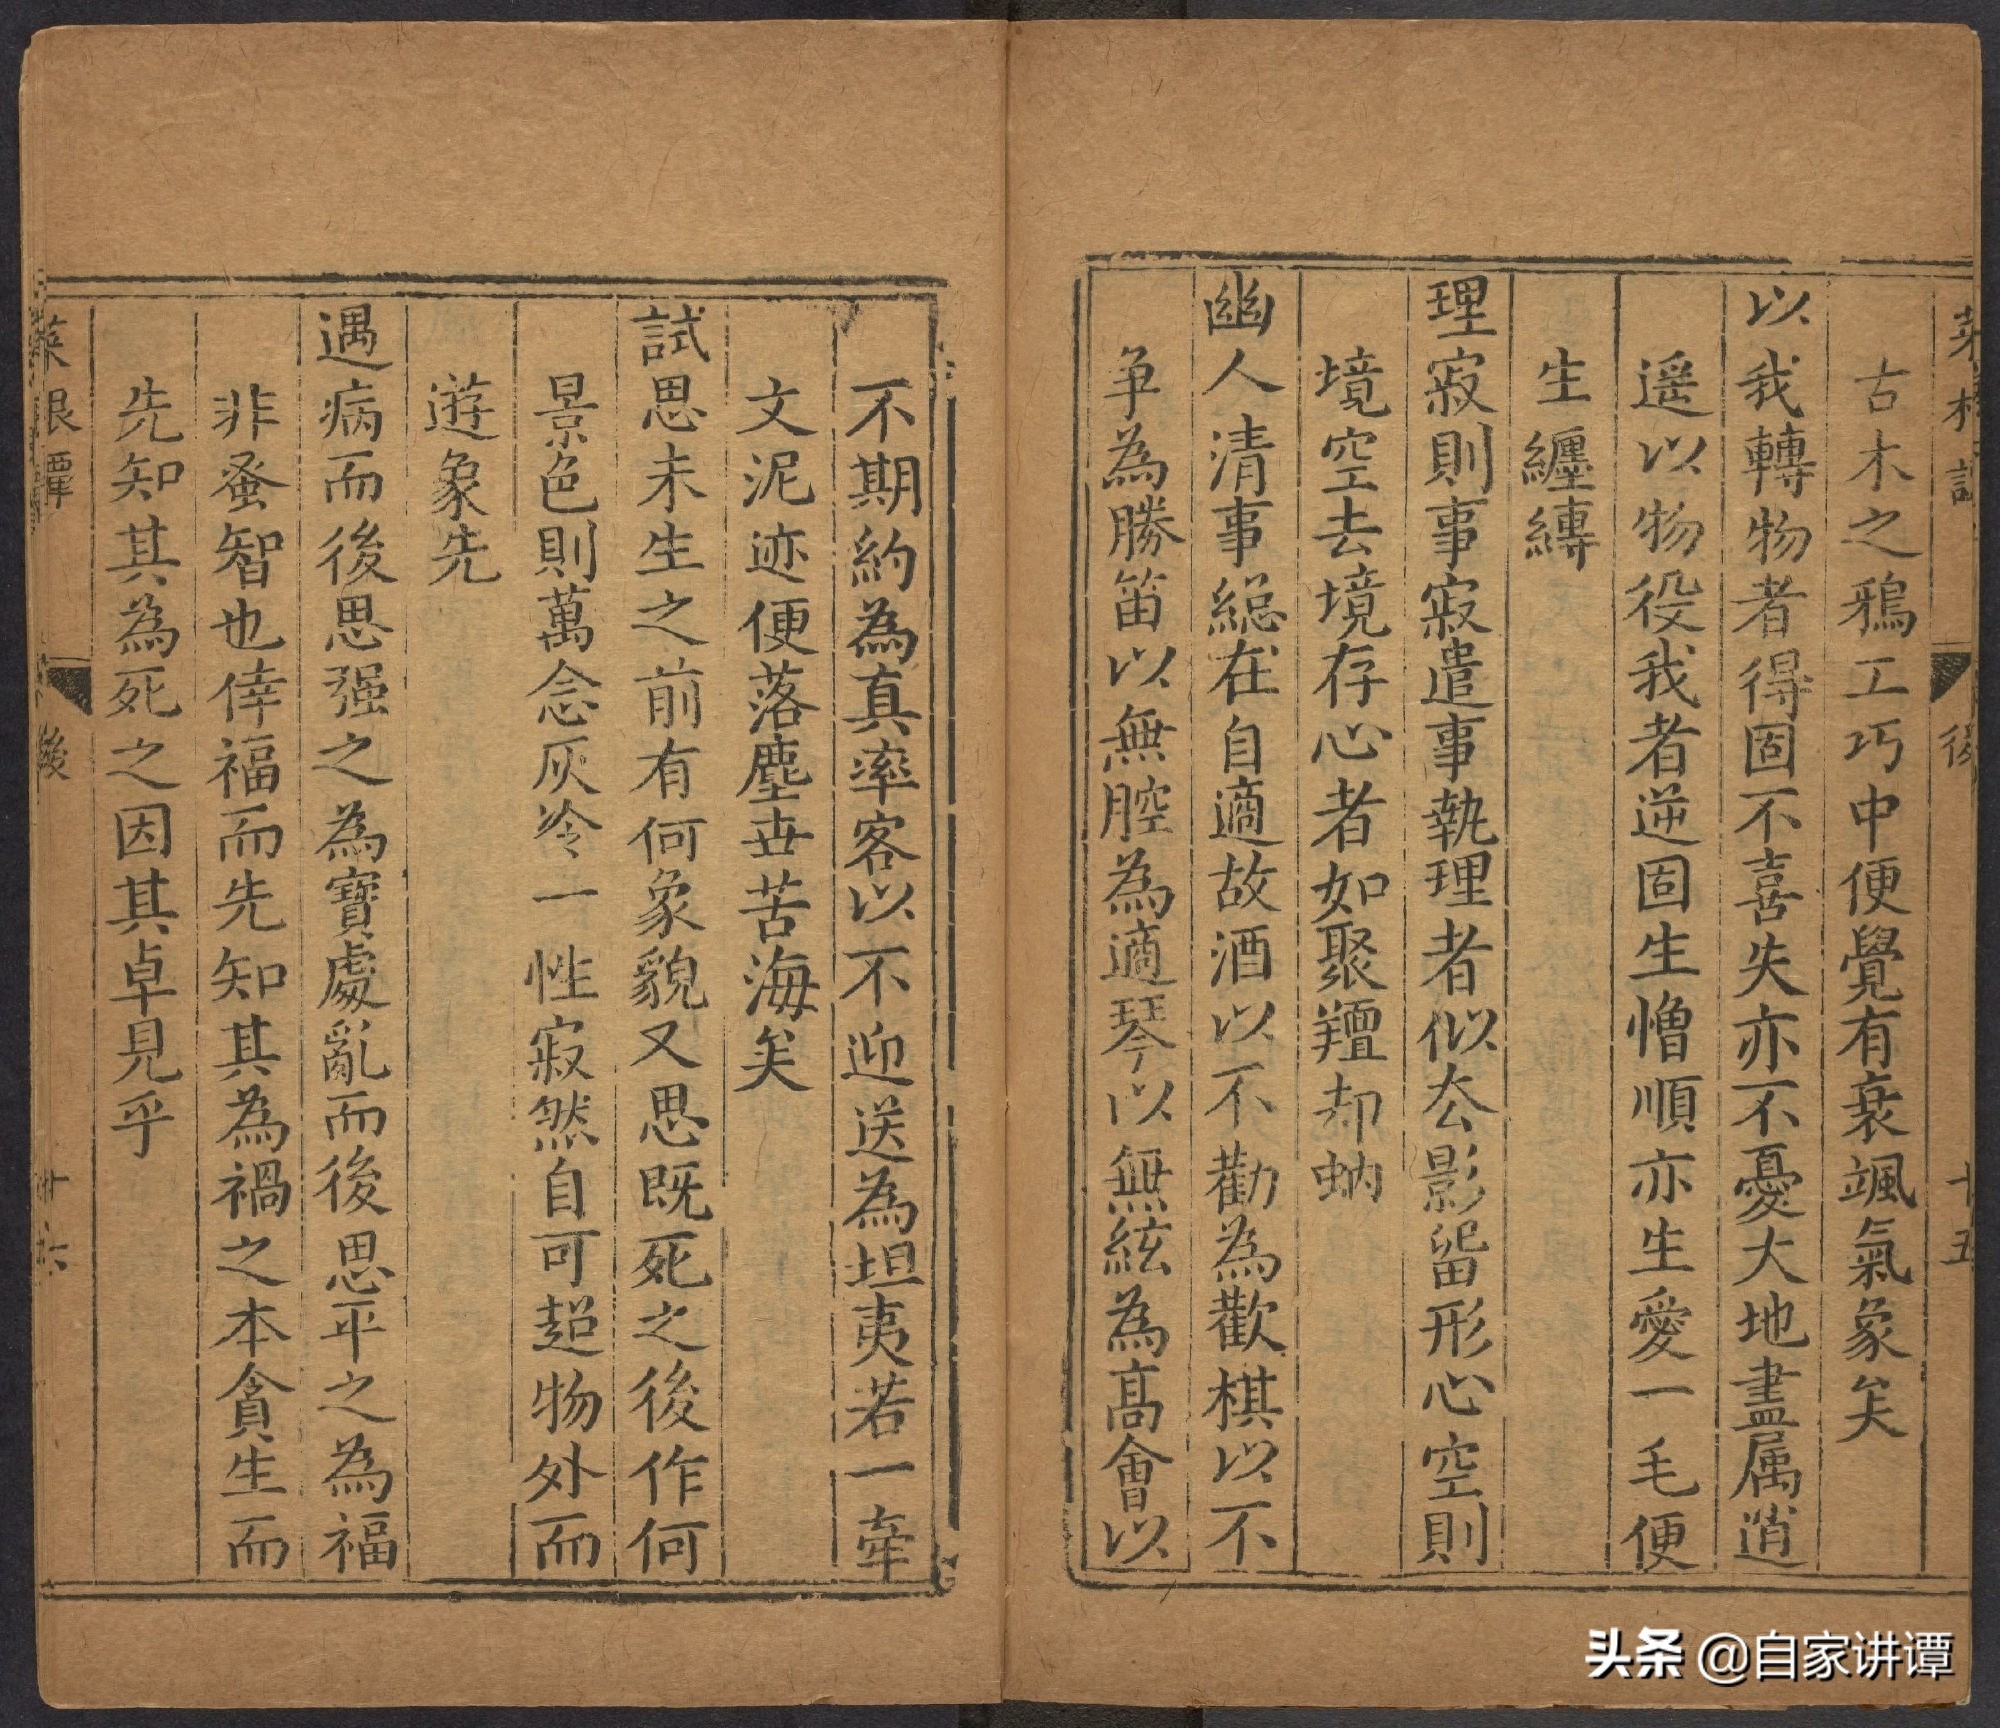 菜根譚 後 十五
古木之鴉工巧中便覺有衰颯氣象矣
以我轉物者得固不喜失亦不憂大地盡属逍
遥以物役我者逆固生憎順亦生愛一毛便
生纏縛
理寂則事寂遣事執理者似厺影留形心空則
境空去境存心者如聚羶却蚋
幽人清事総在自適故酒以不勸為歡棋以不
争為勝笛以無腔為適琴以無絃為高會以
不期約為真率客以不迎送為坦夷若一牽
文泥迹便落塵世苦海矣
試思未生之前有何象貌又思既死之後作何
景色則萬念灰冷一性寂然自可超物外而
遊象先
遇病而後思强之為寶處亂而後思平之為福
非蚤智也倖福而先知其為禍之本貪生而
先知其為死之因其卓見乎
菜根譚 後 十六
头条 @自家讲谭